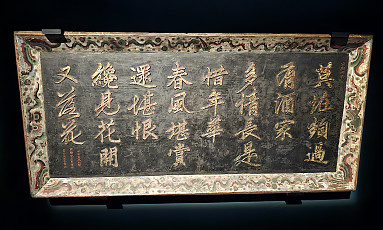 莫恠頻過
有酒家
多情長是
惜年華
春風堪賞
還堪恨
纔見花開
又落花